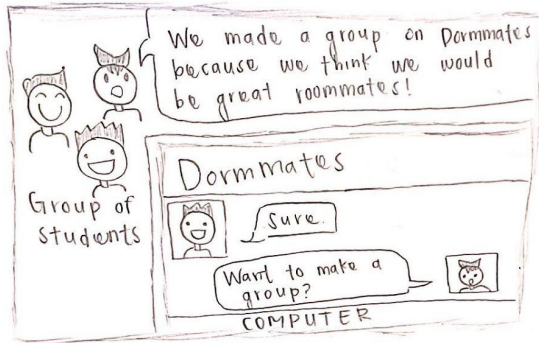 We made a group on Dormmates
because we think we would
be great roommates!
Group of
students
Dormmates
Sure.
Want to make a
group?
COMPUTER